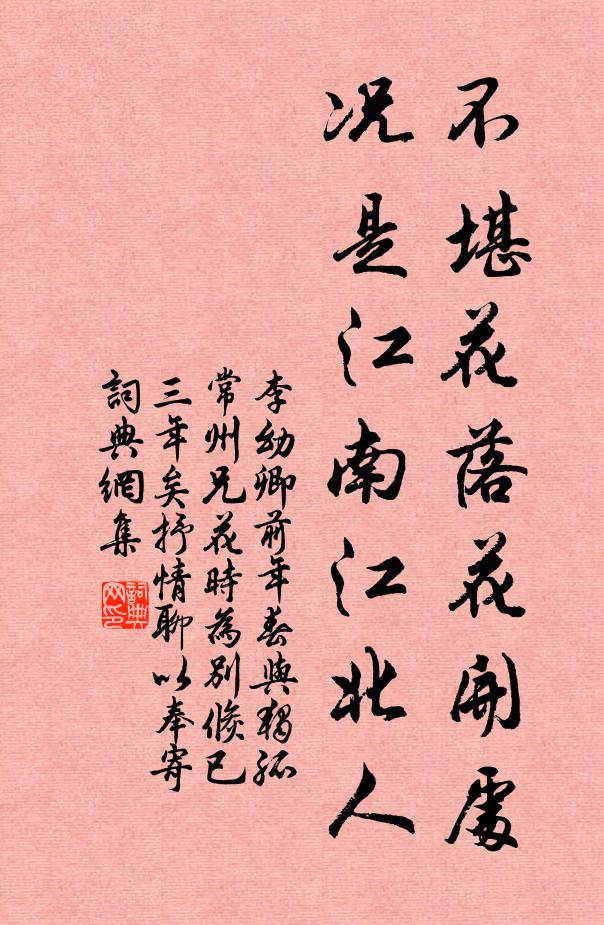 不堪花落花開處
况是江南江北人
李幼卿前年春與獨孤
常州兄花時為別倏已
三年矣抒情聊以奉寄
詞典網集
詞典網印